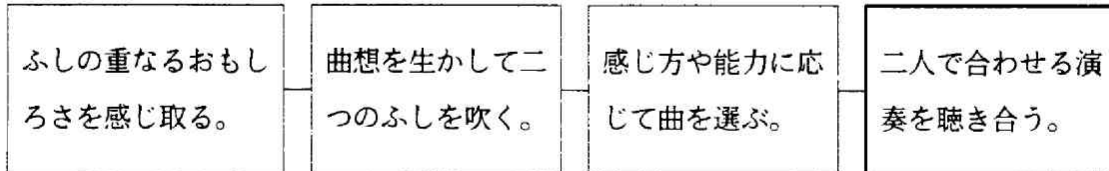 ふしの重なるおもし
ろさを感じ取る。
曲想を生かして二
つのふしを吹く。
感じ方や能力に応
じて曲を選ぶ。
二人で合わせる演
奏を聴き合う。